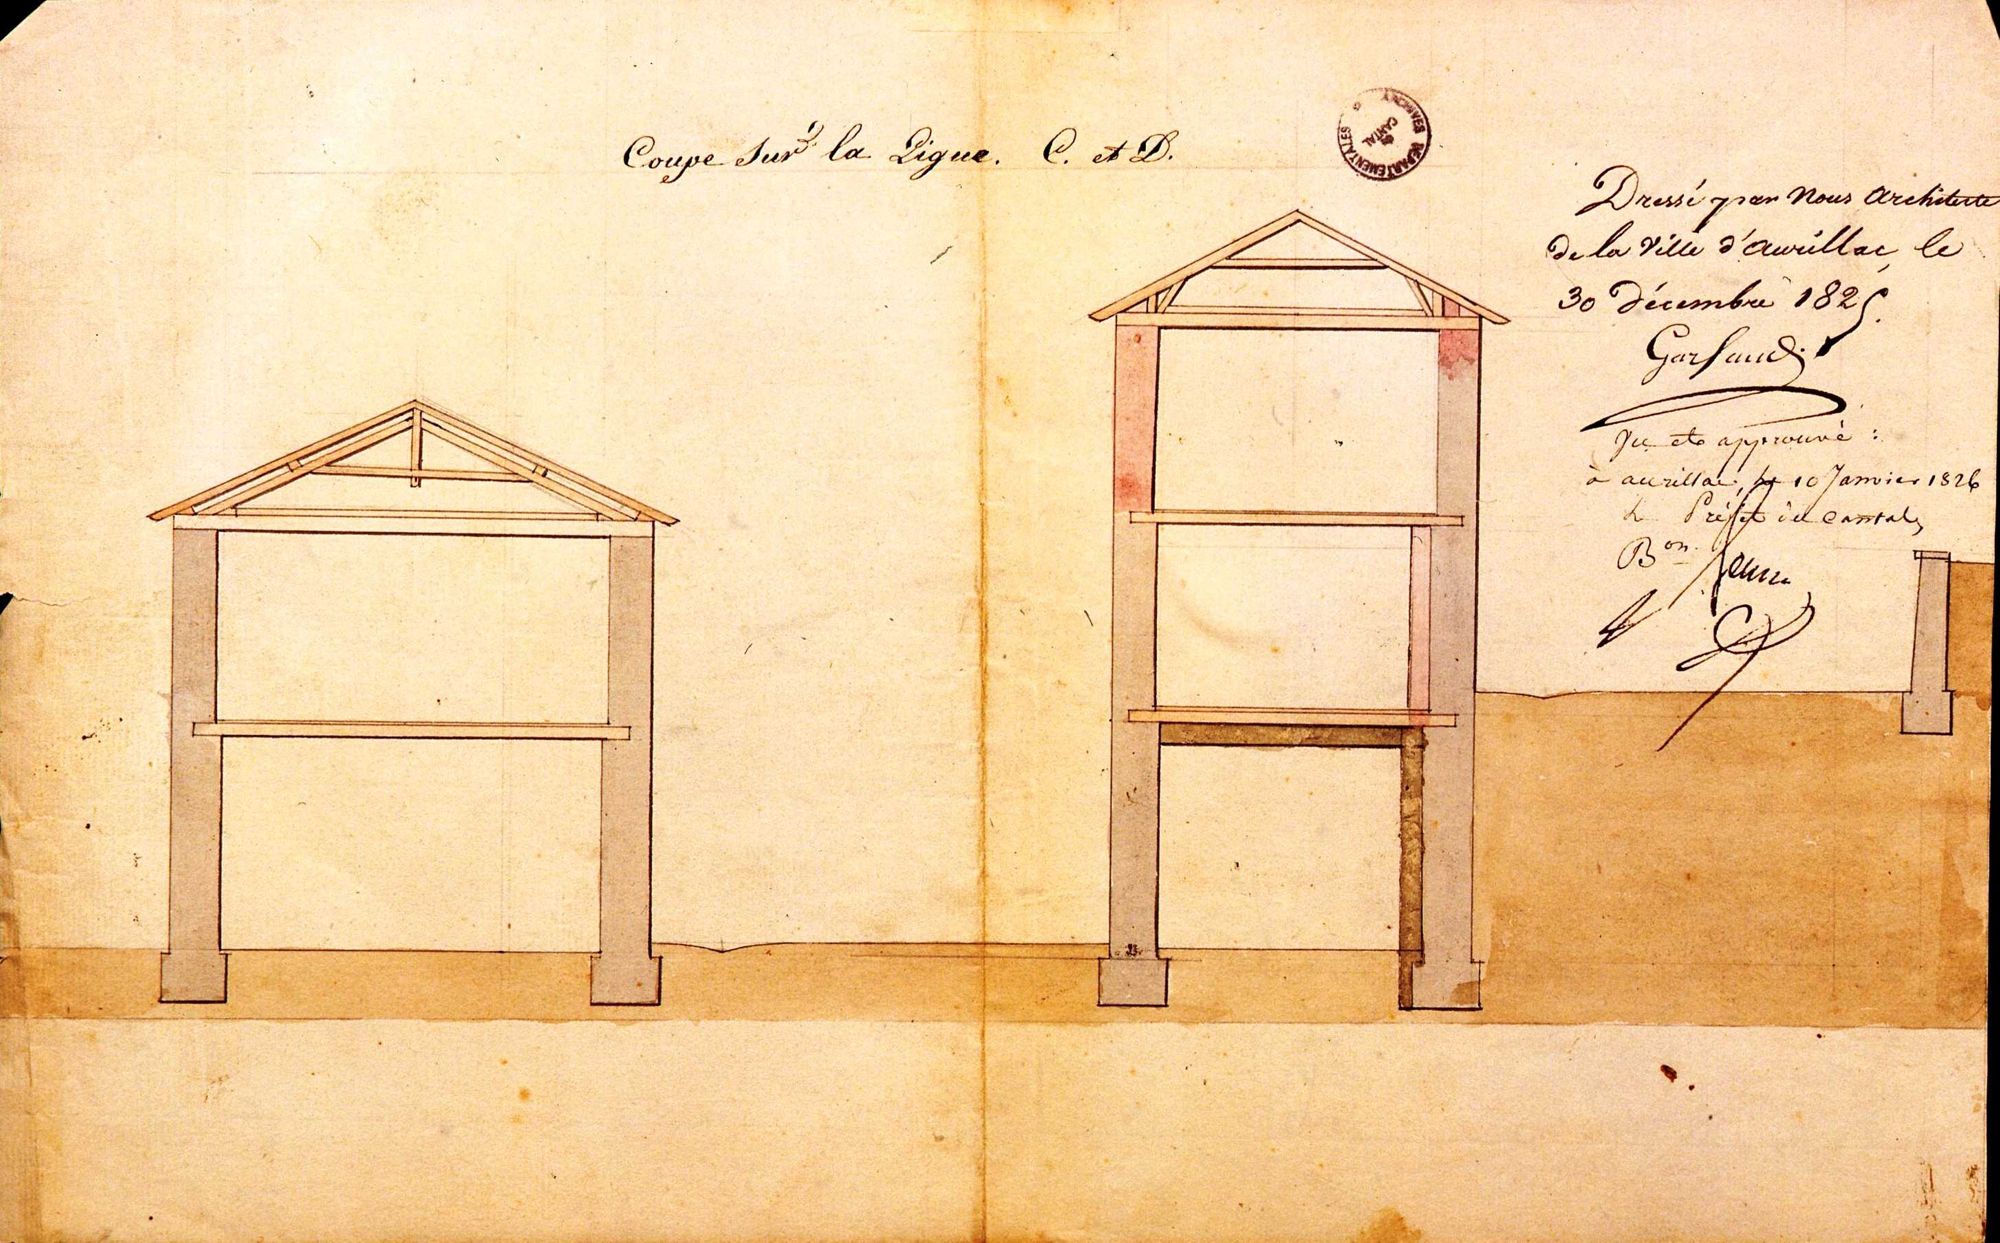 Coupe sur la Ligne. C. et D.
ARCHIVES DEPARTEMENTALES
CANTAL
Dressé par Nous Architecte
de la Ville d'Aurillac, le
30 Décembre 1825.
Vu et approuvé :
à aurillac, le 10 Janvier 1826
Le Préfet du Cantal,
Bon.